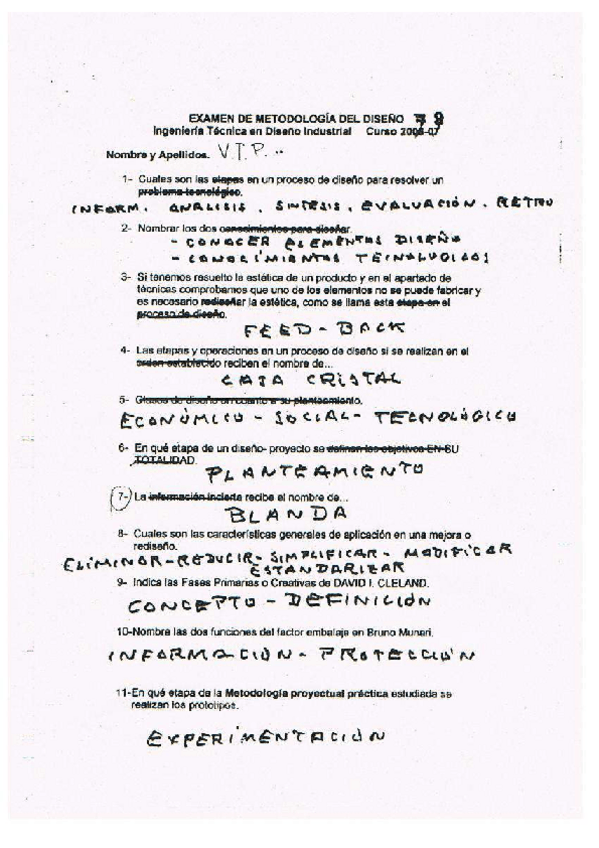 EXAMEN DE METODOLOGÍA DEL DISEÑO
Ingeniería Técnica en Diseño Industrial Curso 2006-07
Nombre y Apellidos. V.T.P. ..
1- Cuales son las etapas en un proceso de diseño para resolver un
problema tecnológico.
INFORM. ANALISIS. SINTESIS. EVALUACIÓN. RETRO
2- Nombrar los dos conocimientos para diseñar.
- CONOCER ELEMENTOS DISEÑO
- CONOCIMIENTOS TECNOLOGICOS
3- Si tenemos resuelto la estética de un producto y en el apartado de
técnicas comprobamos que uno de los elementos no se puede fabricar y
es necesario rediseñar la estética, como se llama esta etapa en el
proceso de diseño.
FEED-BACK
4- Las etapas y operaciones en un proceso de diseño si se realizan en el
orden establecido reciben el nombre de...
CAJA CRISTAL
5- Clases de diseño en cuanto a su planteamiento.
ECONÓMICO - SOCIAL - TECNOLÓGICO
6- En qué etapa de un diseño- proyecto se definen los objetivos EN SU
TOTALIDAD.
PLANTEAMIENTO
7- La información incierta recibe el nombre de...
BLANDA
8- Cuales son las características generales de aplicación en una mejora o
rediseño.
ELIMINAR-REDUCIR-SIMPLIFICAR- MODIFICAR
ESTANDARIZAR
9- Indica las Fases Primarias o Creativas de DAVID I. CLELAND.
CONCEPTO - DEFINICIÓN
10-Nombra las dos funciones del factor embalaje en Bruno Munari.
INFORMACIÓN - PROTECCIÓN
11-En qué etapa de la Metodología proyectual práctica estudiada se
realizan los prototipos.
EXPERIMENTACIÓN